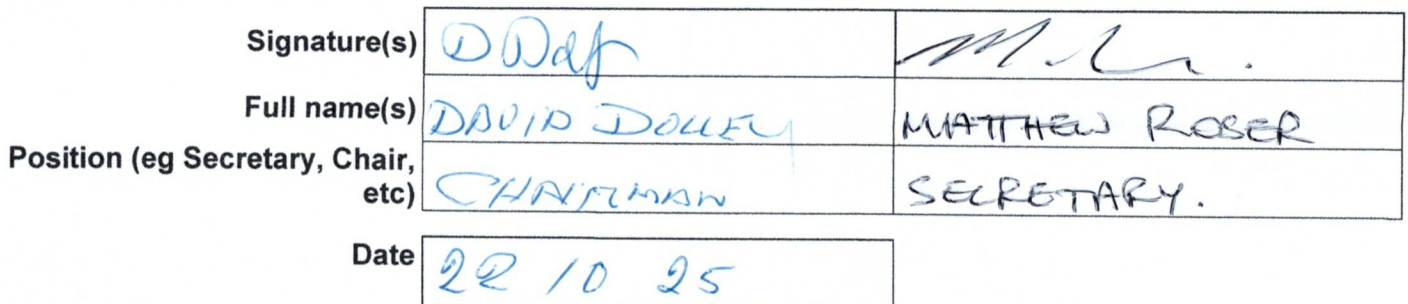 Signature(s)
Full name(s) DAVID DOLLEY MATTHEW ROSER
Position (eg Secretary, Chair,
etc) CHAIRMAN SECRETARY.
Date 22 10 25